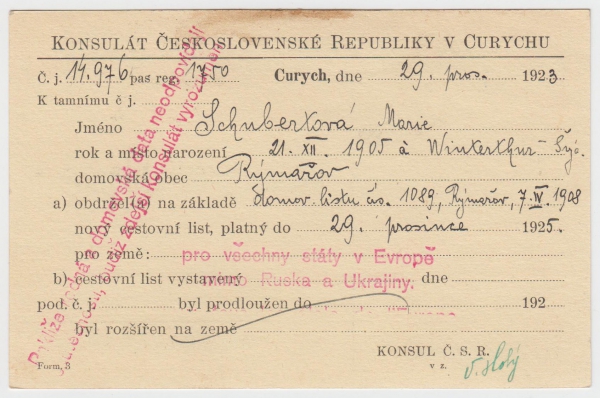 KONSULÁT ČESKOSLOVENSKÉ REPUBLIKY V CURYCHU
Č. j. 14.976 pas reg. 1750 Curych, dne 29. pros. 1923
K tamnímu č j.
Jméno Schubertová Marie
rok a místo narození 21. XII. 1905 à Winterthur - Švýc.
domovská obec Rýmařov
a) obdržel(a) na základě domov. listu čís. 1089, Rýmařov, 7. IV. 1908
nový cestovní list, platný do 29. prosince 1925.
pro země: pro všechny státy v Evropě
mimo Ruska a Ukrajiny.
b) cestovní list vystavený dne
pod. č. j. byl prodloužen do 192
byl rozšířen na země
KONSUL Č. S. R.
v z.
Form. 3
domovská data neodpovídají
zdejší Konsulát vyrozuměn